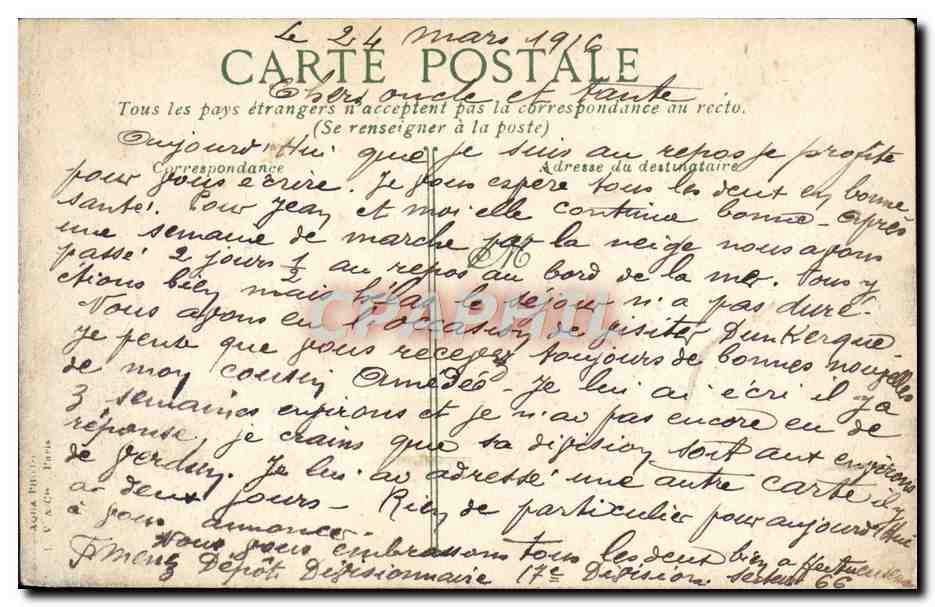 Le 24 mars 1916
CARTE POSTALE
Chers oncle et tante
Tous les pays étrangers n'acceptent pas la correspondance au recto.
(Se renseigner à la poste)
Aujourd'hui que je suis au repos je profite
Correspondance
Adresse du destinataire
pour vous écrire. Je vous espère tous les deux en bonne
santé. Pour Jean et moi elle continue bonne. Après
une semaine de marche par la neige nous avons
passé 2 jours 1/2 au repos au bord de la mer. Nous y
étions bien mais hélas le séjour n'a pas duré.
Nous avons eu l'occasion de visiter Dunkerque.
Je pense que vous recevez toujours de bonnes nouvelles
de mon cousin Amédéo. Je lui ai écri il y a
3 semaines environs et je n'ai pas encore eu de
réponse, je crains que sa division soit aux environs
de Verdun. Je lui ai adressé une autre carte il y
a deux jours. Rien de particulier pour aujourd'hui
à vous annoncer.
Nous vous embrassons tous les deux bien affectueusement
Dépôt Divisionnaire 17e Division secteur 66
CPAPHIL
AQUA PHOTO
L. V. & Cie Paris